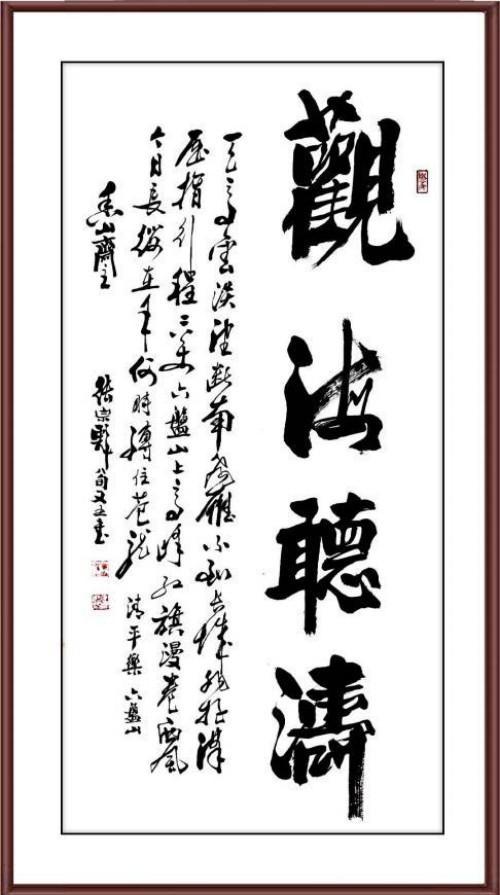 觀海聽濤
天高雲淡望斷南飛雁不到長城非好漢
屈指行程二万六盤山上高峰紅旗漫卷西風
今日長纓在手何時縛住蒼龍 清平樂 六盤山
香山齋主